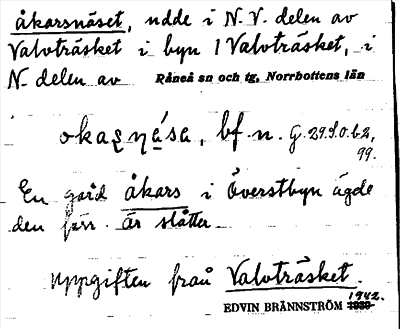 åkarsnäset, udde i N.V. delen av
Valvträsket i byn 1 Valvträsket, i
N. delen av Råneå sn och tg, Norrbottens län
bf. n. G. 29.9.0.62,
99.
En gård åkars i Överstbyn ägde
den förr. är slåtter
uppgiften från Valvträsket.
1942.
EDVIN BRÄNNSTRÖM 1939